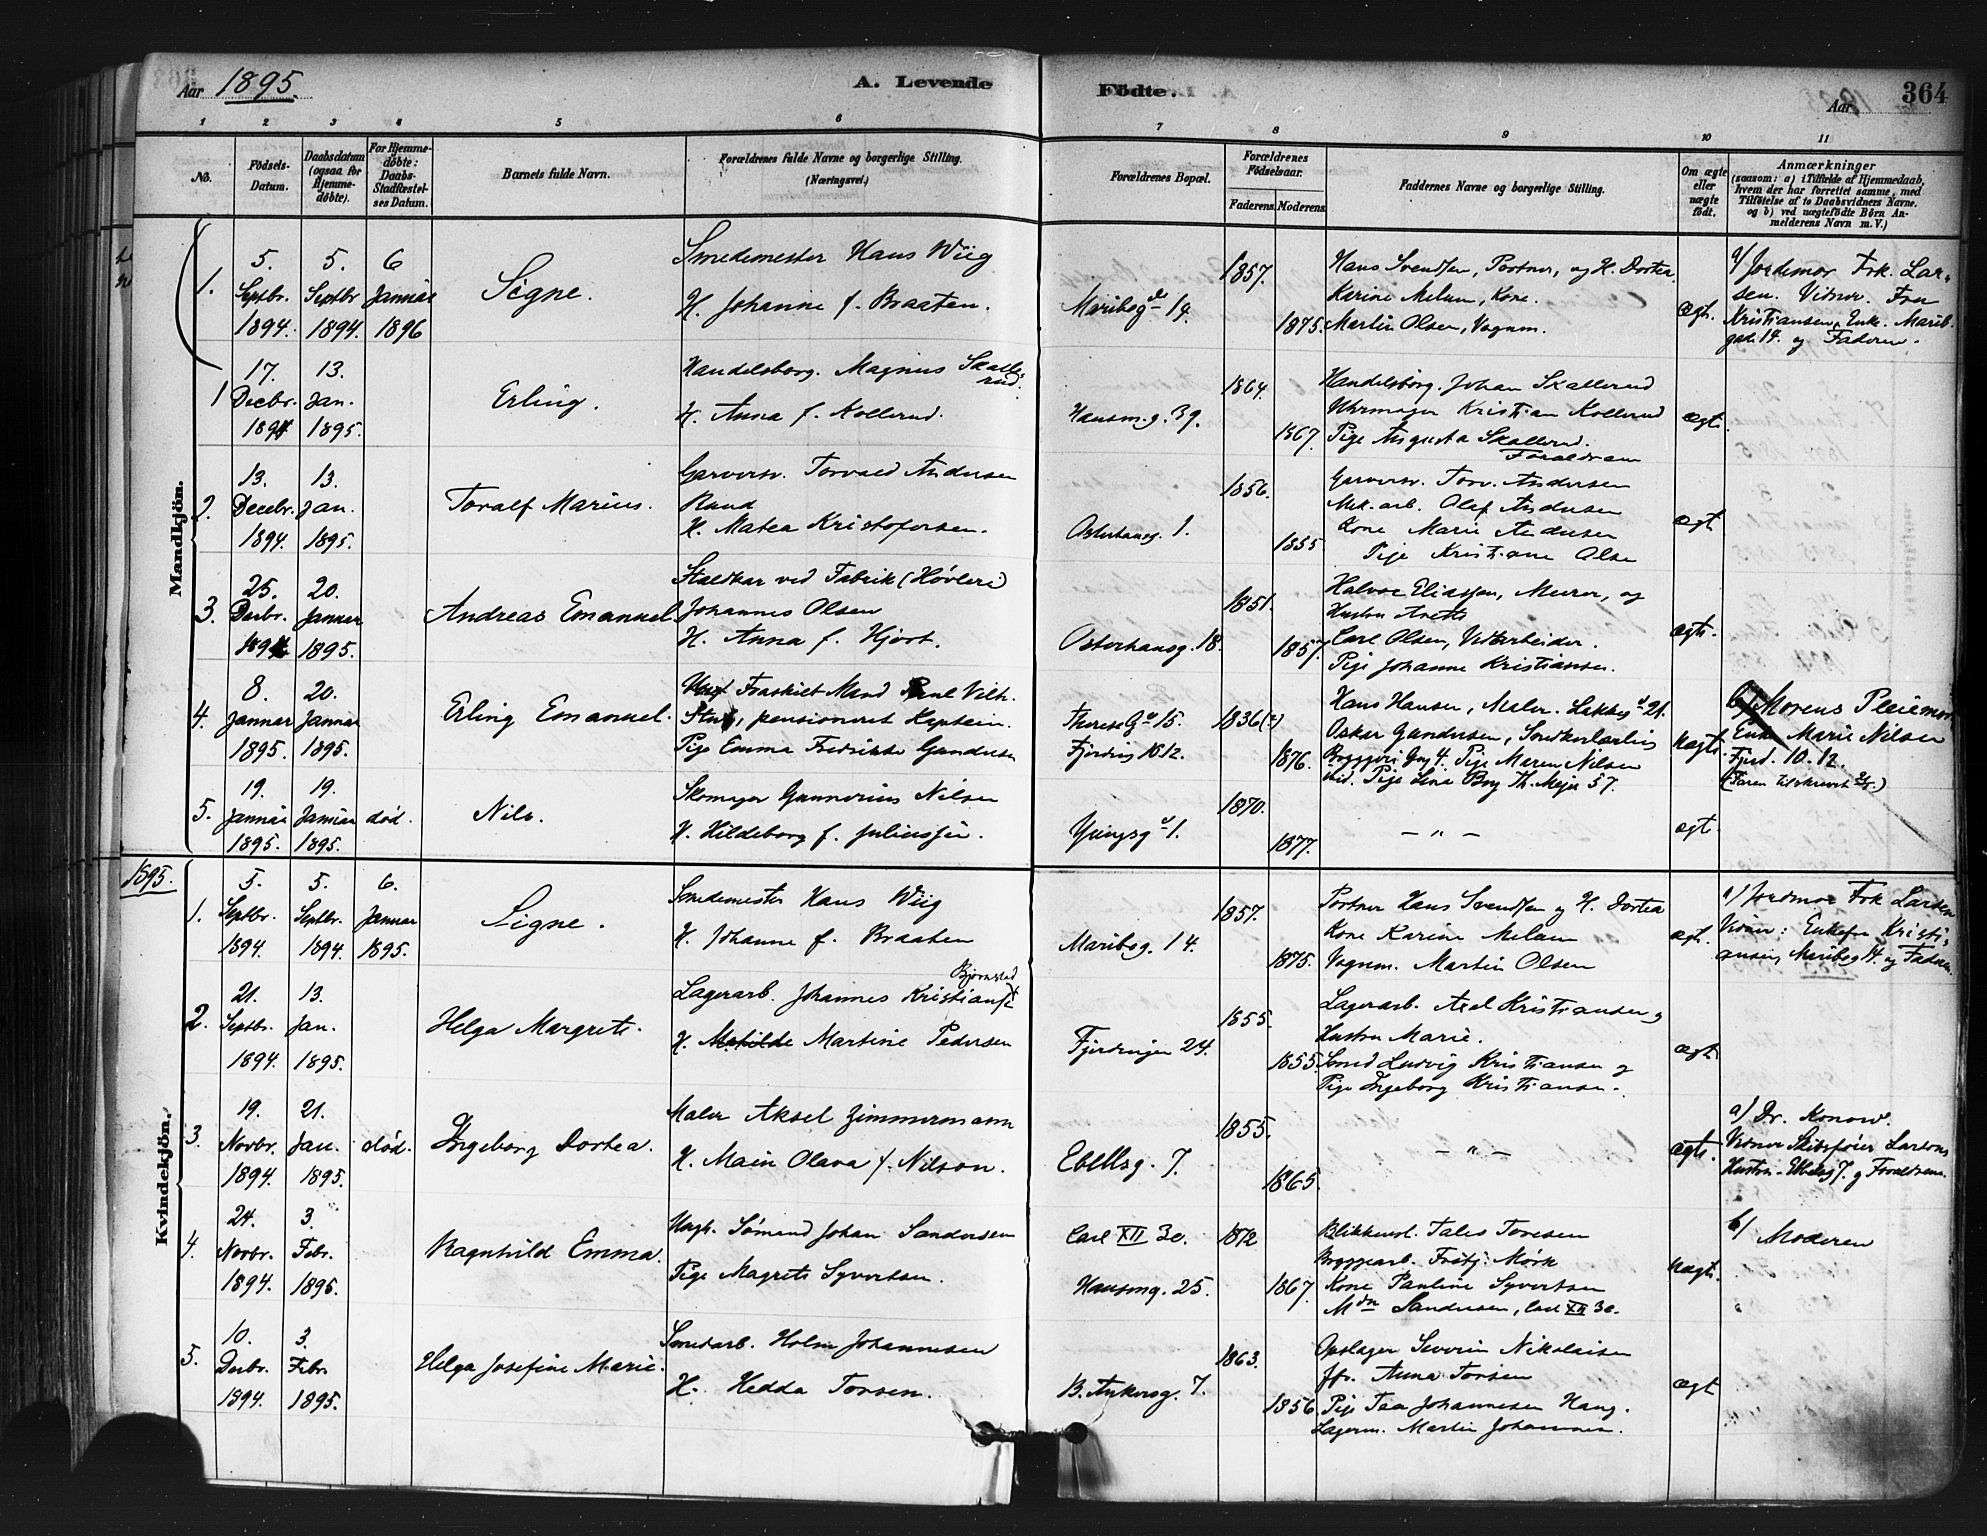 Aar 1895.
A. Levende Fødte.
Aar
364
1 2 3 4 5 6 7 8 9 10 11
No.
Fødsels-Datum.
Daabsdatum (ogsaa for Hjemmedøbte).
For Hjemmedøbte: Daabs-Stadfæstelses Datum.
Barnets fulde Navn.
Forældrenes fulde Navne og borgerlige Stilling.
(Næringsvei.)
Forældrenes Bopæl.
Forældrenes Fødselsaar.
Faderens. Moderens.
Faddernes Navne og borgerlige Stilling.
Om ægte eller uægte født.
Anmærkninger
(saasom: a) i Tilfælde af Hjemmedaab, hvem der har forrettet samme, med Tilføielse af to Daabsvidners Navne. og b) ved uægtefødte Børn Anmelderens Navn m. V.)
Mandkjön.
1. 5. Septbr. 1894. 5. Septbr 1894. 6 Januar 1896
Signe.
Smedemester Hans Wiig
H. Johanne f. Braaten.
Maribog de 14.
1857. 1875.
Hans Svendsen, Portner, og H. Dortea
Karine Melum, Kone.
Martin Olsen, Vognm.
ægt.
a/ Jordemor Frk. Lar-
sen. Vidner. Fru
Kristiansen, Enke. Marib.
gade 14. og Faderen.
1 17. Decbr. 1894 13. Jan. 1895.
Erling.
Handelsborg. Magnus Skalle-
rud.
H. Anna f. Kollerud.
Hausm.g. 39.
1864. 1867.
Handelsborg. Johan Skallerud
Uhrmager Kristian Kollerud
Pige Augusta Skallerud.
Forældrene
ægt.
2. 13. Decebr. 1894. 13. Jan. 1895.
Toralf Marius.
Garversv. Torvald Andersen
Rund
H. Matea Kristofersen.
Osterhausg. 1.
1856. 1855
Garversv. Torv. Andersen
Mek. arb. Olaf Andersen
Kone Marie Andersen
Pige Kristiane Olsen
ægt
3. 25. Decbr. 1894 20. Januar 1895.
Andreas Emanuel.
Staldkar ved Fabrik (Høvleri)
Johannes Olsen
H. Anna f. Hjort.
Osterhausg. 18.
1851. 1857.
Halvor Eliassen, Murer, og
Hustru Anette
Carl Olsen, Veiarbeider.
Pige Johanne Kristiansen.
ægte.
4. 8. Januar 1895. 20. Januar 1895.
Erling Emanuel.
Fraskilt Mand Paul Vilh.
pensioneret Kaptein.
Pige Emma Fredrikke Gundersen
Therese G. 15.
Fjerding 10.12.
1836(?) 1876.
Hans Hansen, Maler. Lakkeg. 21.
Oskar Gundersen, Snedkerlærling
Bryggeri Gag 4. Pige Maren Nilsen
ibid. Pige Lina Berg Th. Mejer 57.
uægte.
b/ Morens Pleiemor
Enke Marie Nilsen
Fjerd. 10.12.
5. 19. Januar 1895. 19. Januar 1895. død.
Nils.
Skomager Gunnerius Nilsen
H. Hildeborg f. Juliussen.
Yungsg. 1.
1870. 1877.
– " –
ægt.
1895.
Kvindekjön.
1. 5. Septbr. 1894. 5. Septbr. 1894. 6. Januar 1895.
Signe.
Smedemester Hans Wiig
H. Johanne f. Braaten
Maribog. 14.
1857. 1875.
Portner Hans Svendsen og H. Dortea
Kone Karine Melum
Vognm. Martin Olsen
ægt.
a/ Jordmor Frk Larsen
Vidner: Enkefru Kristi-
ansen, Maribog 14. og Faderen.
2. 21. Septbr. 1894. 13. Jan. 1895.
Helga Margrete.
Bjørnstad
Lagerarb. Johannes Kristians
H. Mathilde Martine Pedersen
Fjerdingen 24.
1855. 1855.
Lagerarb. Axel Kristiansen og
Hustru Marie.
Smed Ludvig Kristiansen og
Pige Ingeborg Kristiansen.
ægt
3. 19. Novbr. 1894. 21. Jan. 1895. død.
Ingeborg Dortea.
Maler Aksel Zimmermann
H. Main Olava f. Nilson.
Ebellsg. 7.
1855. 1865.
– " –
ægte.
a/ Dr. Konow.
Vidner Skibsfører Larsons
Hustru – Ebelsg 7. og Forældrene.
4. 24. Novbr. 1894 3. Febr. 1895.
Ragnhild Emma.
Ungk. Sømand Johan Sandersen
Pige Magrete Syvertsen.
Carl XII 30.
Hausmg. 25.
1872 1867.
Blikkensl. Tales Toresen
Bryggearb. Fritj. Mørk
Kone Pauline Syvertsen
Mdm Sandersen, Carl XII 30.
uægt.
b/ Moderen
5. 10. Decbr. 1894 3. Febr. 1895.
Helga Josefine Marie.
Smedarb. Holm Johannesen
H. Hedda Torsen.
B. Ankersg. 7.
1863. 1856
Opslager Severin Nikolaisen
Anna Torsen
Pige Taa Johannesen Haug.
Lagerm. Martin Johannesen.
ægt